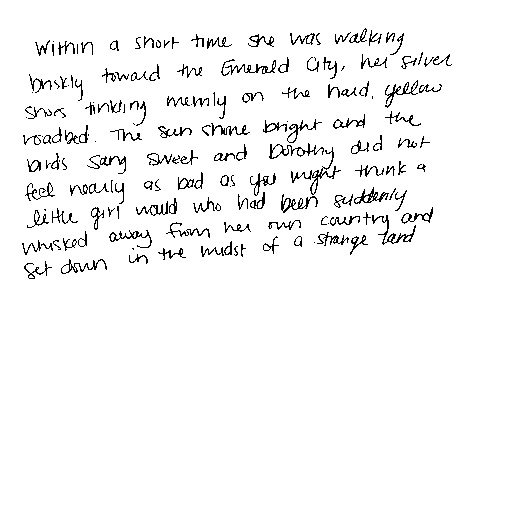 Within a short time she was walking
briskly toward the Emerald City, her silver
shoes tinkling merrily on the hard, yellow
roadbed. The sun shone bright and the
birds sang sweet and Dorothy did not
feel nearly as bad as you might think a
little girl would who had been suddenly
whisked away from her own country and
set down in the midst of a strange land